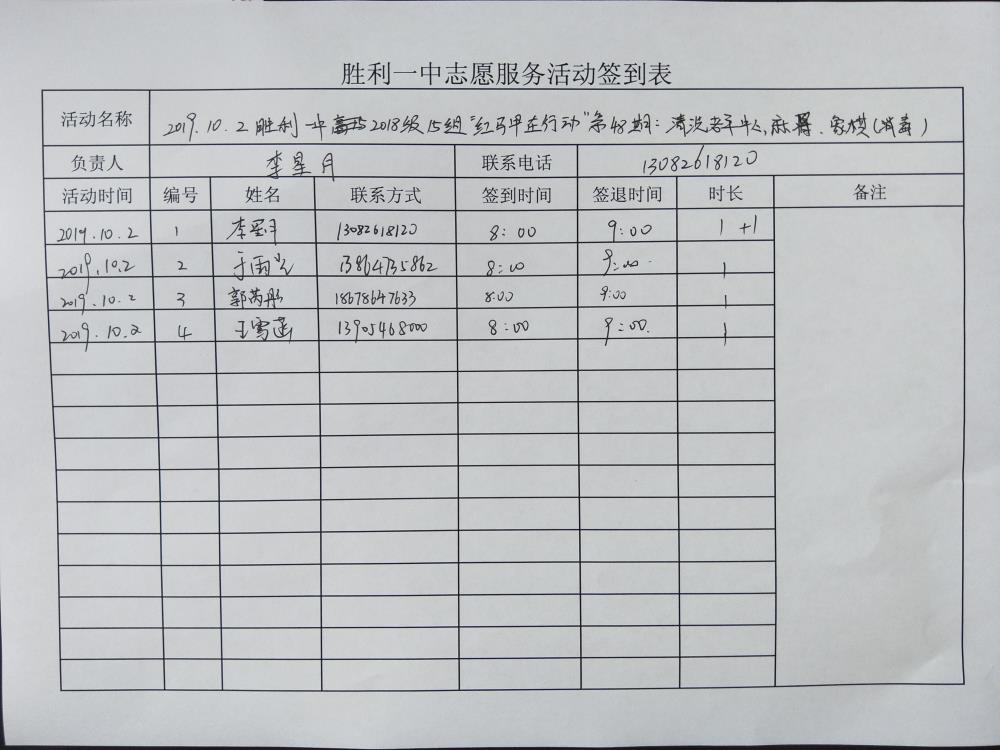 胜利一中志愿服务活动签到表
活动名称 2019.10.2 胜利一中 2018级15组"红马甲在行动"第48期:清洗老年中心麻将、象棋(消毒)
负责人 李星月 联系电话 13082618120
活动时间 编号 姓名 联系方式 签到时间 签退时间 时长 备注
2019.10.2 1 李星月 13082618120 8:00 9:00 1 +1
2019.10.2 2 于雨光 13864735862 8:00 9:00. 1
2019.10.2 3 郭芮彤 18678647633 8:00 9:00 1
2019.10.2 4 王雪涵 13905468000 8:00 9:00. 1